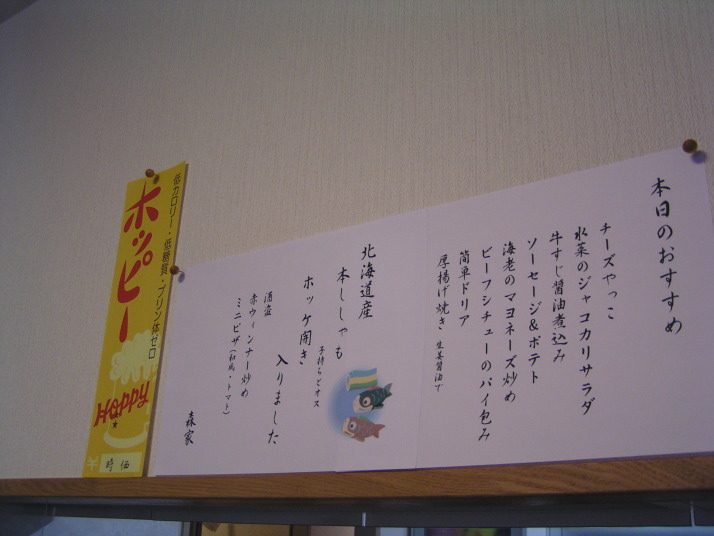 本日のおすすめ
チーズやっこ
水菜のジャコカリサラダ
牛すじ醤油煮込み
ソーセージ&ポテト
海老のマヨネーズ炒め
ビーフシチューのパイ包み
簡単ドリア
厚揚げ焼き 生姜醤油で
北海道産
本ししゃも
子持ちとオス
ホッケ開き
入りました
酒盗
赤ウィンナー炒め
ミニピザ(和風・トマト)
森家
低カロリー・低糖質・プリン体ゼロ
ホッピー
Hoppy
¥時価